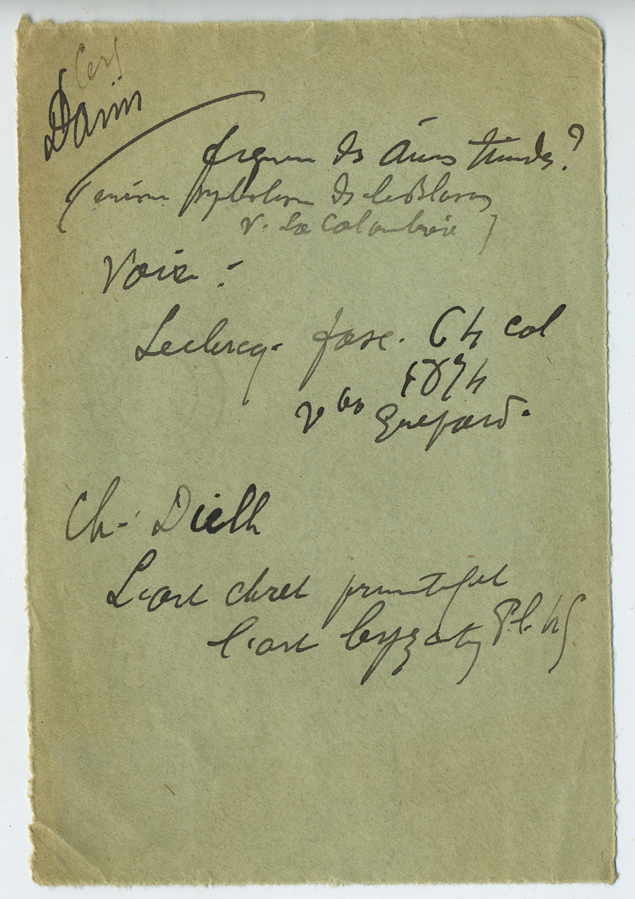 Cerf
Daim
figure des âmes timides?
(même symbolisme ds le Blason
v. La Colombière)
Voir :
Leclercq. fasc. 64 col
1874
v° Guépard.
Ch. Diehl
L'art chret primitif et
l'art byzanty Pl. 45